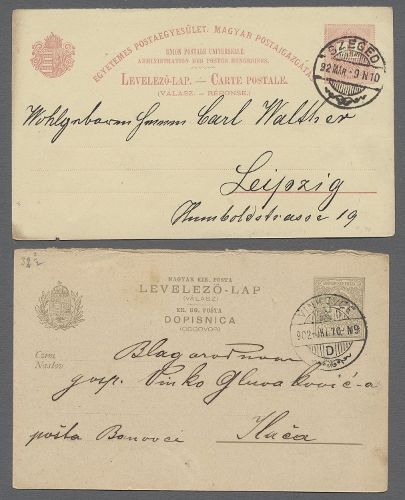 EGYETEMES POSTAEGYESÜLET. MAGYAR POSTAIGAZGATÁS.
UNION POSTALE UNIVERSELLE.
ADMINISTRATION DES POSTES HONGROISES.
LEVELEZŐ-LAP. — CARTE POSTALE.
(VÁLASZ. — RÉPONSE.)
SZEGED
92 MÁR. 9 N 10
Wohlgeboren Herrn Carl Walther
Leipzig
Humboldstrasse 19
MAGYAR KIR. POSTA
LEVELEZŐ-LAP
(VÁLASZ)
KR. UG. POŠTA
DOPISNICA
(ODGOVOR)
VINKOVCE
902 N9
D
Czim
Naslov
Blagorodnom
gosp. Vinko
pošta Ilača